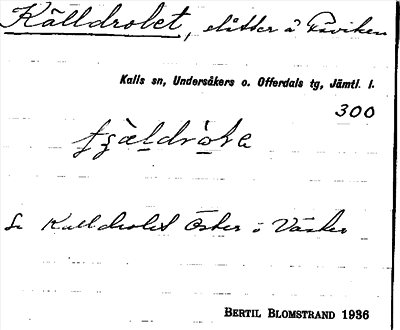 Källdrolet, slåtter å Råviken
Kalls sn, Undersåkers o. Offerdals tg, Jämtl. l.
300
Se Kalldrolet Öster o Väster
BERTIL BLOMSTRAND 1936